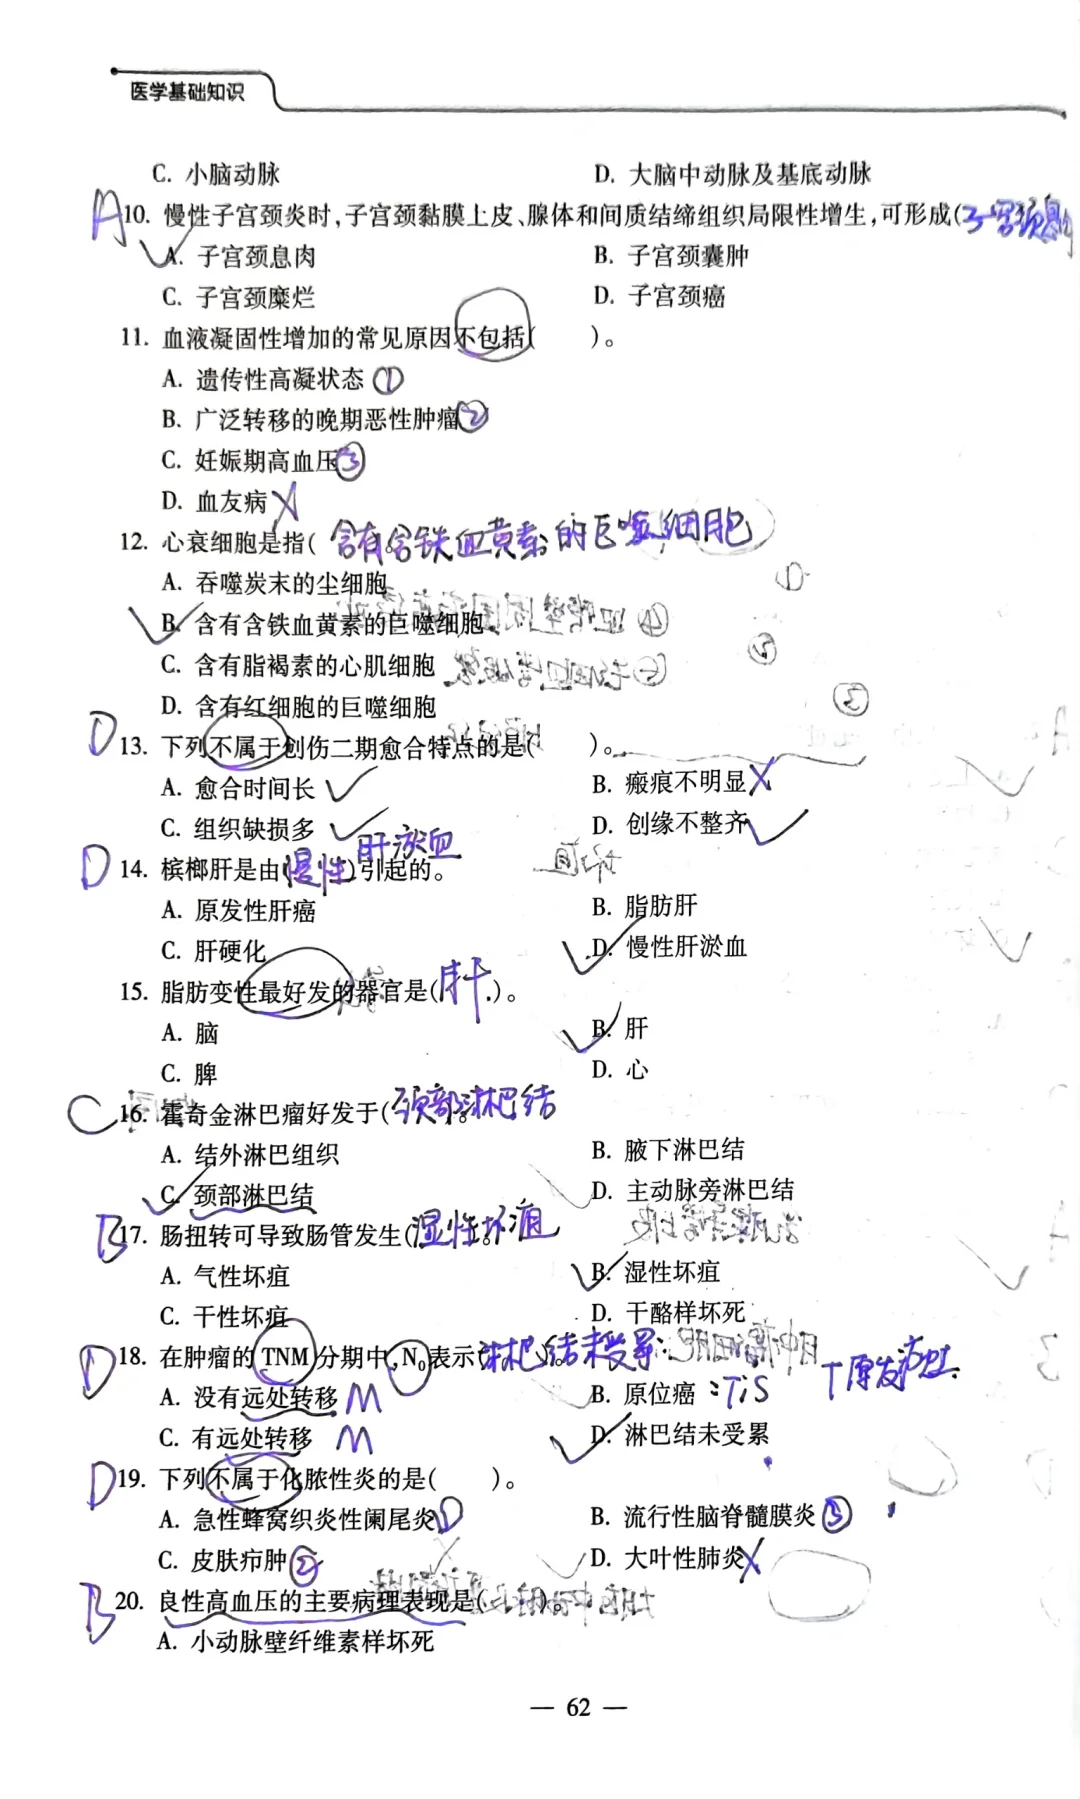 医学基础知识
C. 小脑动脉 D. 大脑中动脉及基底动脉
A 10. 慢性子宫颈炎时,子宫颈黏膜上皮、腺体和间质结缔组织局限性增生,可形成(子宫颈息肉
A. 子宫颈息肉 B. 子宫颈囊肿
C. 子宫颈糜烂 D. 子宫颈癌
11. 血液凝固性增加的常见原因不包括( )。
A. 遗传性高凝状态 ①
B. 广泛转移的晚期恶性肿瘤 ②
C. 妊娠期高血压 ③
D. 血友病 X
12. 心衰细胞是指( 含有含铁血黄素的巨噬细胞
A. 吞噬炭末的尘细胞
B. 含有含铁血黄素的巨噬细胞
C. 含有脂褐素的心肌细胞
D. 含有红细胞的巨噬细胞
D 13. 下列不属于创伤二期愈合特点的是( )。
A. 愈合时间长 B. 瘢痕不明显 X
C. 组织缺损多 D. 创缘不整齐
D 14. 槟榔肝是由(慢性肝淤血)引起的。
A. 原发性肝癌 B. 脂肪肝
C. 肝硬化 D. 慢性肝淤血
15. 脂肪变性最好发的器官是(肝)。
A. 脑 B. 肝
C. 脾 D. 心
C 16. 霍奇金淋巴瘤好发于(颈部淋巴结
A. 结外淋巴组织 B. 腋下淋巴结
C. 颈部淋巴结 D. 主动脉旁淋巴结
B 17. 肠扭转可导致肠管发生(湿性坏疽
A. 气性坏疽 B. 湿性坏疽
C. 干性坏疽 D. 干酪样坏死
D 18. 在肿瘤的TNM分期中,N₀表示(淋巴结未受累)。
A. 没有远处转移 M B. 原位癌 :TiS T原发病灶
C. 有远处转移 M D. 淋巴结未受累
D 19. 下列不属于化脓性炎的是( )。
A. 急性蜂窝织炎性阑尾炎 ① B. 流行性脑脊髓膜炎 ③
C. 皮肤疖肿 ② D. 大叶性肺炎 X
B 20. 良性高血压的主要病理表现是( )。
A. 小动脉壁纤维素样坏死
— 62 —